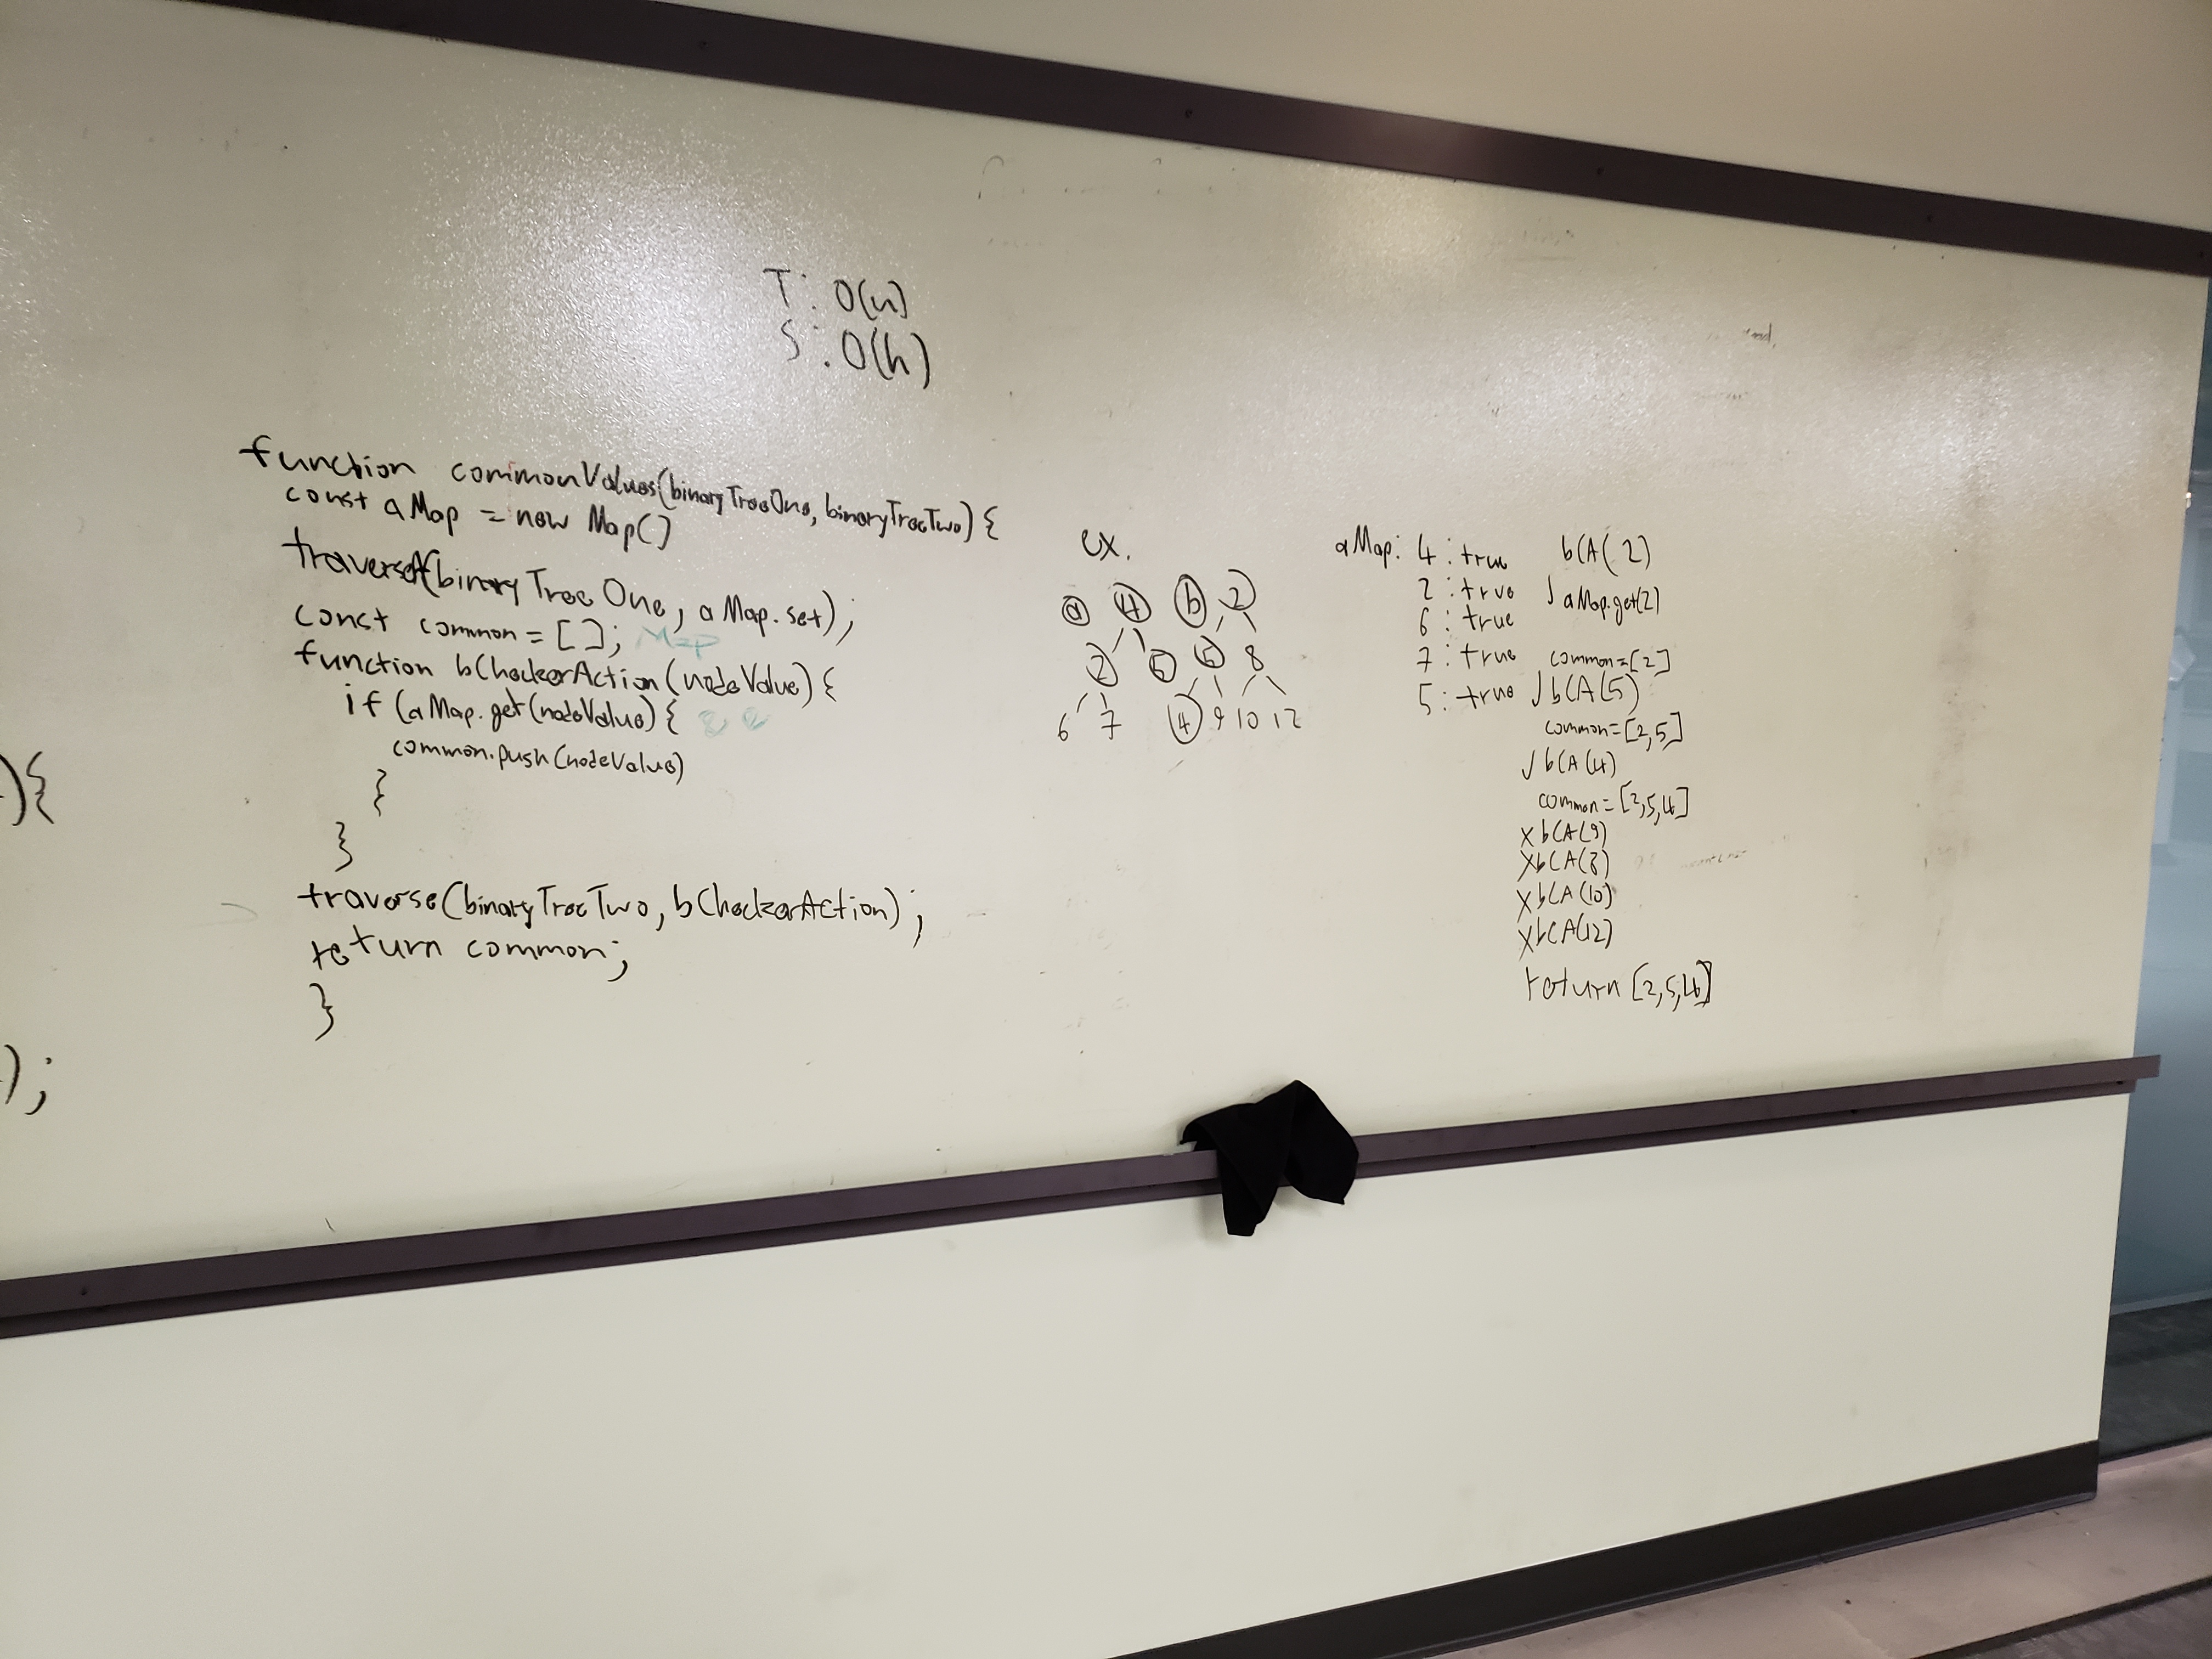 T: O(n)
S: O(h)
function commonValues(binaryTreeOne, binaryTreeTwo) {
const aMap = new Map()
traverse(binaryTreeOne, aMap.set);
const common = []; Map
function bCheckerAction(nodeValue) {
if (aMap.get(nodeValue) {
common.push(nodeValue)
}
}
traverse(binaryTreeTwo, bCheckerAction);
return common;
}
) {
);
ex.
a 4 b 2
2 5 5 8
6 7 4 9 10 12
aMap: 4 : true
2 : true
6 : true
7 : true
5 : true
bCA(2)
√ aMap.get(2)
common=[2]
√ bCA(5)
common=[2,5]
√ bCA(4)
common=[2,5,4]
X bCA(9)
X bCA(8)
X bCA(10)
X bCA(12)
return [2,5,4]